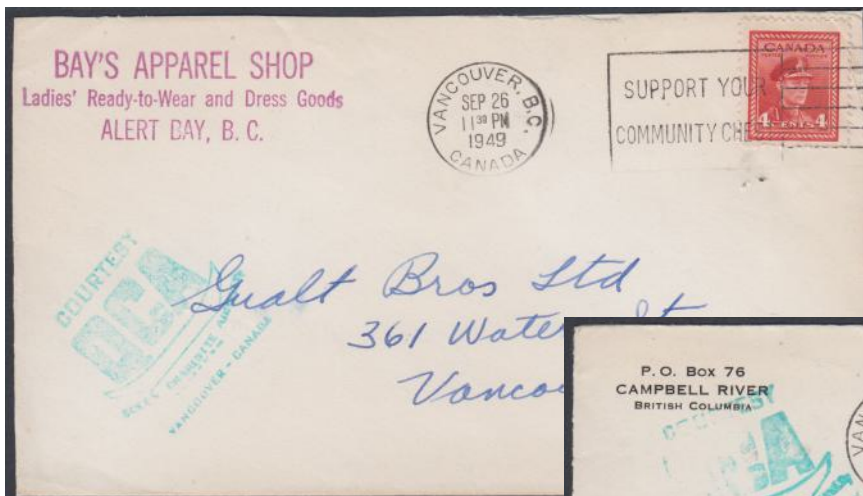 BAY'S APPAREL SHOP
Ladies' Ready-to-Wear and Dress Goods
ALERT BAY, B. C.
VANCOUVER, B.C.
SEP 26
11 30 PM
1949
CANADA
SUPPORT YOUR
COMMUNITY CHE
CANADA
4 CENTS 4
COURTESY
QCA
QUEEN CHARLOTTE
VANCOUVER - CANADA
Gualt Bros Ltd
361 Water St
Vancou
P. O. Box 76
CAMPBELL RIVER
BRITISH COLUMBIA
VAN
COURTESY